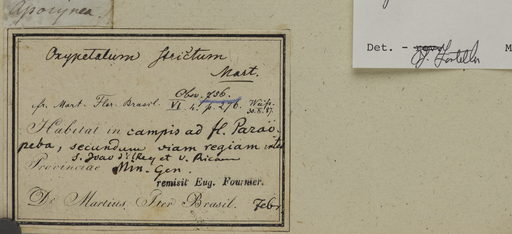 Apocynea.
Oxypetalum strictum
Mart.
Obsv. 756.
fr. Mart. Flor. Brasil. VI. 4. p. 276.
Habitat in campis ad fl. Parao-
peba, secundum viam regiam inter
S. Joao d'El Rey et V. Ricam
Provinciae Min. Gen.
remisit Eug. Fournier.
Dr. Martius Iter Brasil. Febr.
Det. -
M